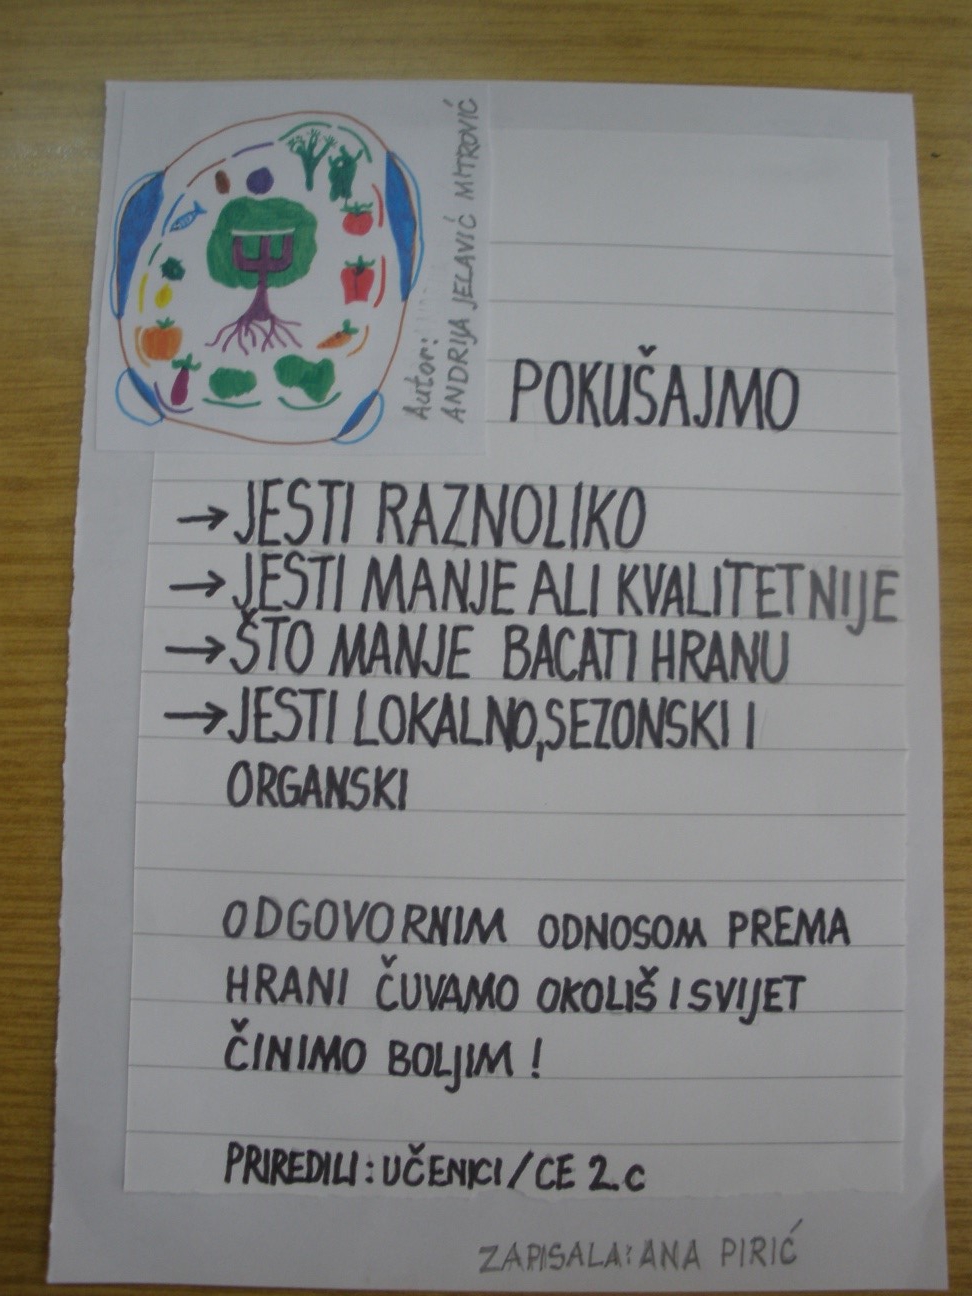 Autor:
ANDRIJA JELAVIĆ MITROVIĆ
POKUŠAJMO
→JESTI RAZNOLIKO
→JESTI MANJE ALI KVALITETNIJE
→ŠTO MANJE BACATI HRANU
→JESTI LOKALNO,SEZONSKI I
ORGANSKI
ODGOVORNIM ODNOSOM PREMA
HRANI ČUVAMO OKOLIŠ I SVIJET
ČINIMO BOLJIM !
PRIREDILI: UČENICI/CE 2.c
ZAPISALA: ANA PIRIĆ